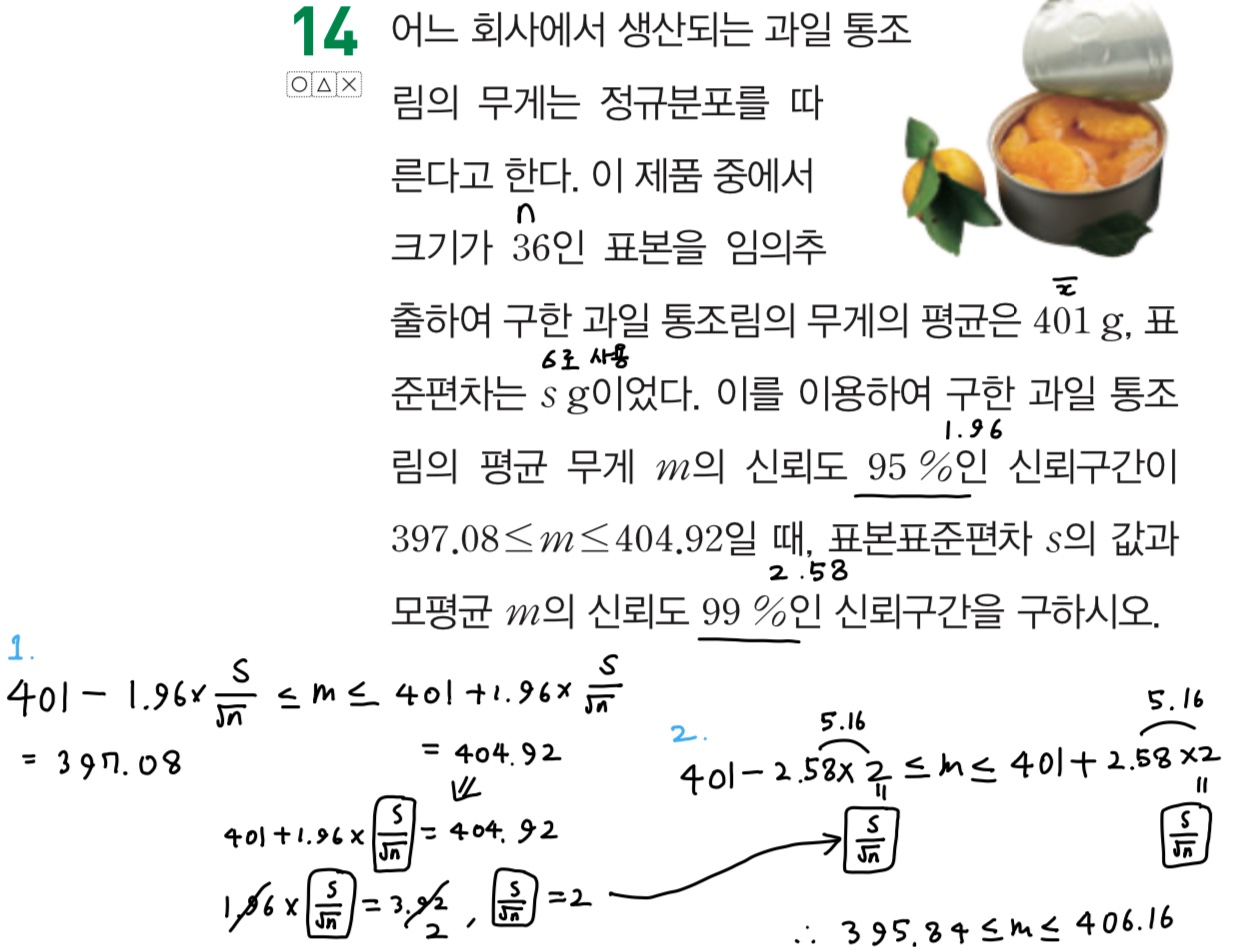 14 어느 회사에서 생산되는 과일 통조
○ △ ×
림의 무게는 정규분포를 따
른다고 한다. 이 제품 중에서
n
크기가 36인 표본을 임의추
x̄
출하여 구한 과일 통조림의 무게의 평균은 401 g, 표
6로 사용
준편차는 s g이었다. 이를 이용하여 구한 과일 통조
1.96
림의 평균 무게 m의 신뢰도 95 %인 신뢰구간이
397.08≤m≤404.92일 때, 표본표준편차 s의 값과
2.58
모평균 m의 신뢰도 99 %인 신뢰구간을 구하시오.
1.
401 - 1.96× S/√n ≤ m ≤ 401 + 1.96× S/√n
= 397.08 = 404.92
⇓
401 + 1.96 × S/√n = 404.92
1.96 × S/√n = 3.92 2 , S/√n = 2
2.
5.16 5.16
401 - 2.58× 2 ≤ m ≤ 401 + 2.58 ×2
= =
S/√n S/√n
∴ 395.84 ≤ m ≤ 406.16